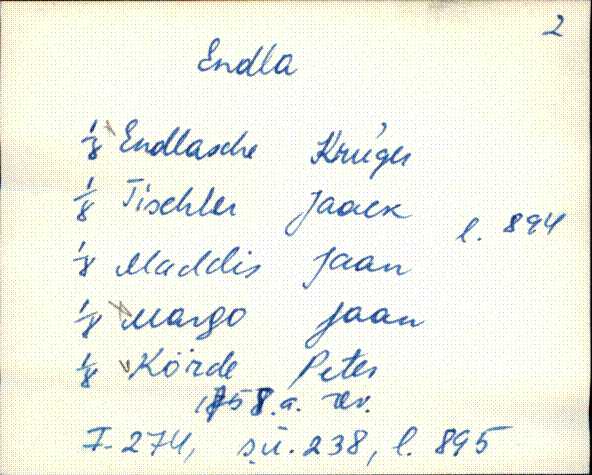 2
Endla
1/8 Endlasche Krüger
1/8 Tischler Jaack
l. 894
1/8 Maddis Jaan
1/8 Margo Jaan
1/8 v Körde Peter
1758.a. rev.
F. 274, sü. 238, l. 895